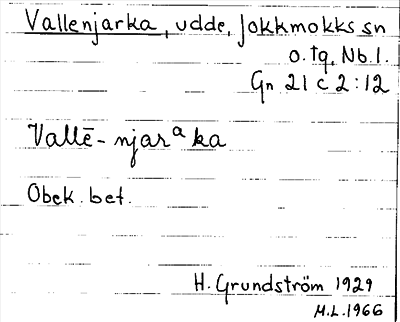 Vallenjarka, udde, Jokkmokks sn
o. tg, Nb. l.
Gn 21 c 2:12
Vallē-njarᵃka
Obek. bet.
H. Grundström 1929
M.L. 1966